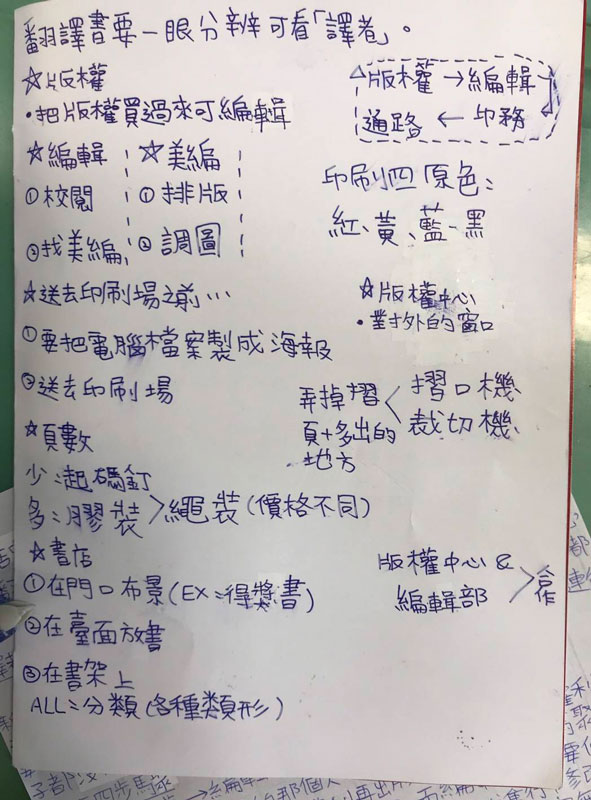 翻譯書要一眼分辨可看「譯者」。
☆版權
・把版權買過來可編輯
△版權→編輯
通路←印務
☆編輯
①校閱
②找美編
☆美編
①排版
②調圖
印刷四原色：
紅、黃、藍、黑
☆送去印刷場之前…
①要把電腦檔案製成海報
②送去印刷場
☆版權中心
・對外的窗口
弄掉摺
頁+多出的
地方
摺口機
裁切機
☆頁數
少：起碼釘
多：膠裝>繩裝(價格不同)
☆書店
①在門口布景(EX：得獎書)
②在臺面放書
③在書架上
ALL：分類(各種類形)
版權中心&
編輯部
>合作